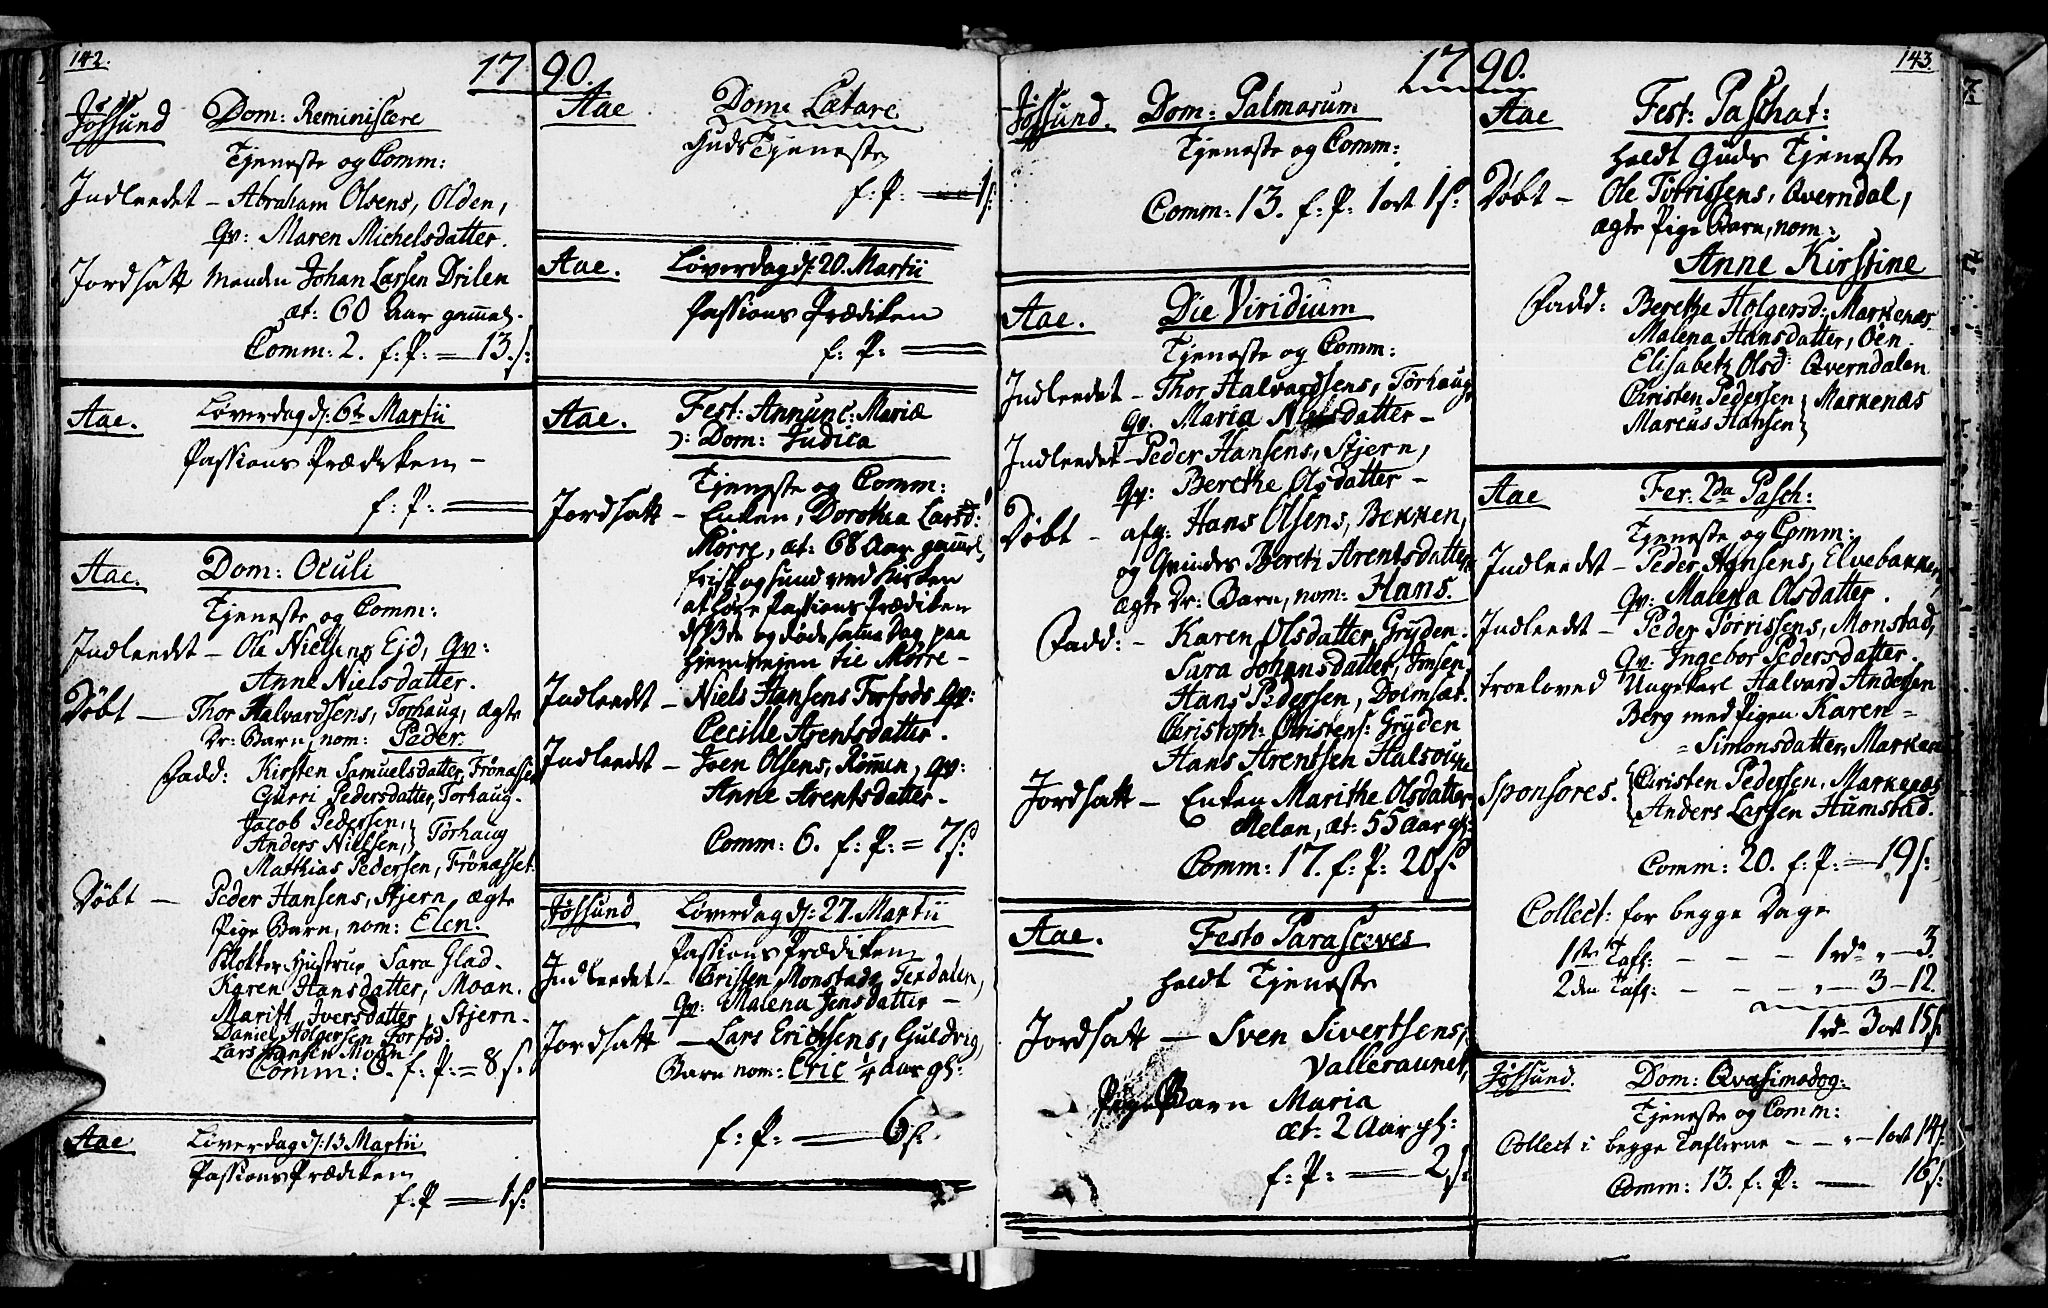 142.
17 90.
Jøssund Dom: Reminiscere
Tjeneste og Comm:
Indleedet – Abraham Olsens, Olden,
Qv: Maren Michelsdatter.
Jordsatt Manden Johan Larsen Drilen
æt: 60 Aar gammel.
Comm: 2. f: P: = 13.s:
Aae. Løverdag d: 6te Martii
Passions Prædiken –
f: P: =
Aae. Dom: Oculi
Tjeneste og Comm:
Indleedet – Ole Nielsens Ejd, Qv:
Anne Nielsdatter.
Døbt – Thor Halvardsens, Torhaug, ægte
Dr: Barn, nom: Peder.
Fadd: Kirsten Samuelsdatter, Frønæsset
Gurri Pedersdatter, Torhaug.
Jacob Pedersen,
Anders Nielsen, } Tørhaug
Matthias Pedersen, Frønæsset.
Døbt – Peder Hansens, Stjern ægte
Pige Barn, nom: Elen.
Klokker Hustrue Sara Glad.
Karen Hansdatter, Moan.
Maritt Iversdatter, Stjern.
Daniel Holgersen Forfod.
Lars Hansen Moan
Comm: 8. f: P: = 8 s.
Aae Løverdag d: 13 Martii
Passions Prædiken
f: P = 1s:
Aae Dom: Lætare
Guds Tjeneste
f: P: = 1s:
Aae. Løverdag d: 20. Martii
Passions Prædiken
f: P: =
Aae. Fest: Annunc: Mariæ
ɔ: Dom: Judica
Tjeneste og Comm:
Jordsatt – Enken, Dorothea Larsd:
Mørre, æt: 68 Aar gammel,
frisk og sund ved Kirken
at høre Passions Prædiken
d: 13de og døde samme Dag paa
Hjemvejen til Mørre –
Indleedet – Niels Hansens Forfods Qv:
Cecille Arentsdatter.
Indleedet – Iven Olsens, Rømmen, Qv:
Anne Arentsdatter.
Comm: 6. f: P: = 7s:
Jøssund Løverdag d: 27. Martii
Passions Prædiken
Indleedet – Christen Monstads Terdalen,
Qv: Malena Jensdatter –
Jordsatt – Lars Erichsens, Guldvig,
Barn nom: Eric 1/4 Aar gl:
f: P: = 6s.
17 90.
143.
Jøssund. Dom: Palmarum
Tjeneste og Comm:
Comm: 13. f: P: 1 ort 1s:
Aae. Die Viridium
Tjeneste og Comm:
Indleedet – Thor Halvardsens, Tørhaug
Qv: Maria Nielsdatter –
Indleedet – Peder Hansens, Stjern,
Qv: Berethe Olsdatter –
Døbt – afg: Hans Olsens, Bekken,
og Qvindes Beret: Arentsdatter
ægte Dr: Barn, nom: Hans.
Fadd: – Karen Olsdatter, Gryden.
Sara Johansdatter, Imsen.
Hans Pedersen, Dolmsæt.
Christoph: Christens: Gryden
Hans Arentsen Halvou
Jordsatt – Enken Marithe Olsdatter
Melan, æt: 55 Aar gl:
Comm: 17. f: P: 20s.
Aae. Festo Parasceves
holdt Tjeneste
Jordsatt – Sven Sivertsens,
Valleraunet,
Pige Barn Maria
æt: 2 Aar gl:
f: P: = 2s:
Aae Fest: Paschat:
holdt Guds Tjeneste
Døbt – Ole Torrissens, Qverndal,
ægte Pige Barn, nom:
Anne Kirstine
Fadd: Berethe Holgersd: Markenæs
Malena Hansdatter, Øen
Elisabeth Olsd: Qverndalen
Christen Pedersen
Marcus Hansen } Markenæs
Aae Fer: 2da Pasch:
Tjeneste og Comm:
Indleedet – Peder Hansens, Elvebakken,
Qv: Malena Olsdatter.
Indleedet – Peder Torrissens, Monstad,
Qv: Ingebor Pedersdatter.
troeloved Ungekarl Halvard Andersen
Berg med Pigen Karen =
= Simonsdatter, Marken
Sponsores. { Christen Pedersen, Markenæs
Anders Larsen Humstad.
Comm: 20. f: P: = 19s:
Collect: for begge Dage
1ste Tafl: – – – 1 rd „ – 3.
2den Tafl: – – – „ – 3 – 12.
1 rd 3 ort 15s.
Jøssund. Dom: Qvasimodog:
Tjeneste og Comm:
Collect i begge Taflerne – – „ – 1 ort 14s
Comm: 13. f: P: — 16s: